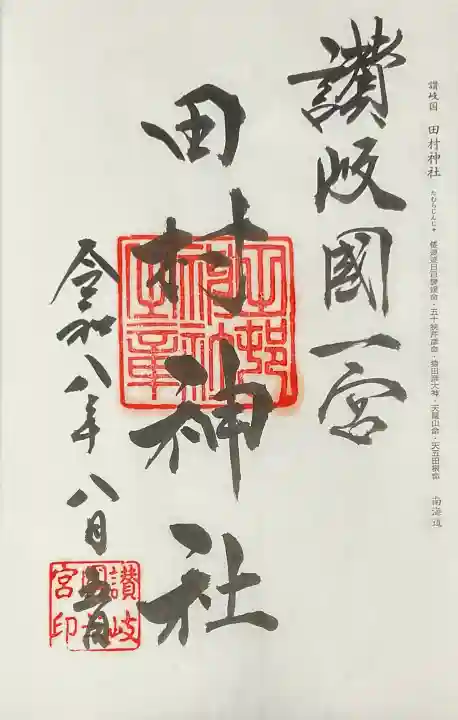 讃岐国 田村神社 たむらじんじゃ 倭迹迹日百襲姫命・五十狭芹彦命・猿田彦大神・天隠山命・天五田根命 南海道
讃岐國一宮
田村神社
令和八年 八月 五日
田邨
神社
之章
讃岐
宮印